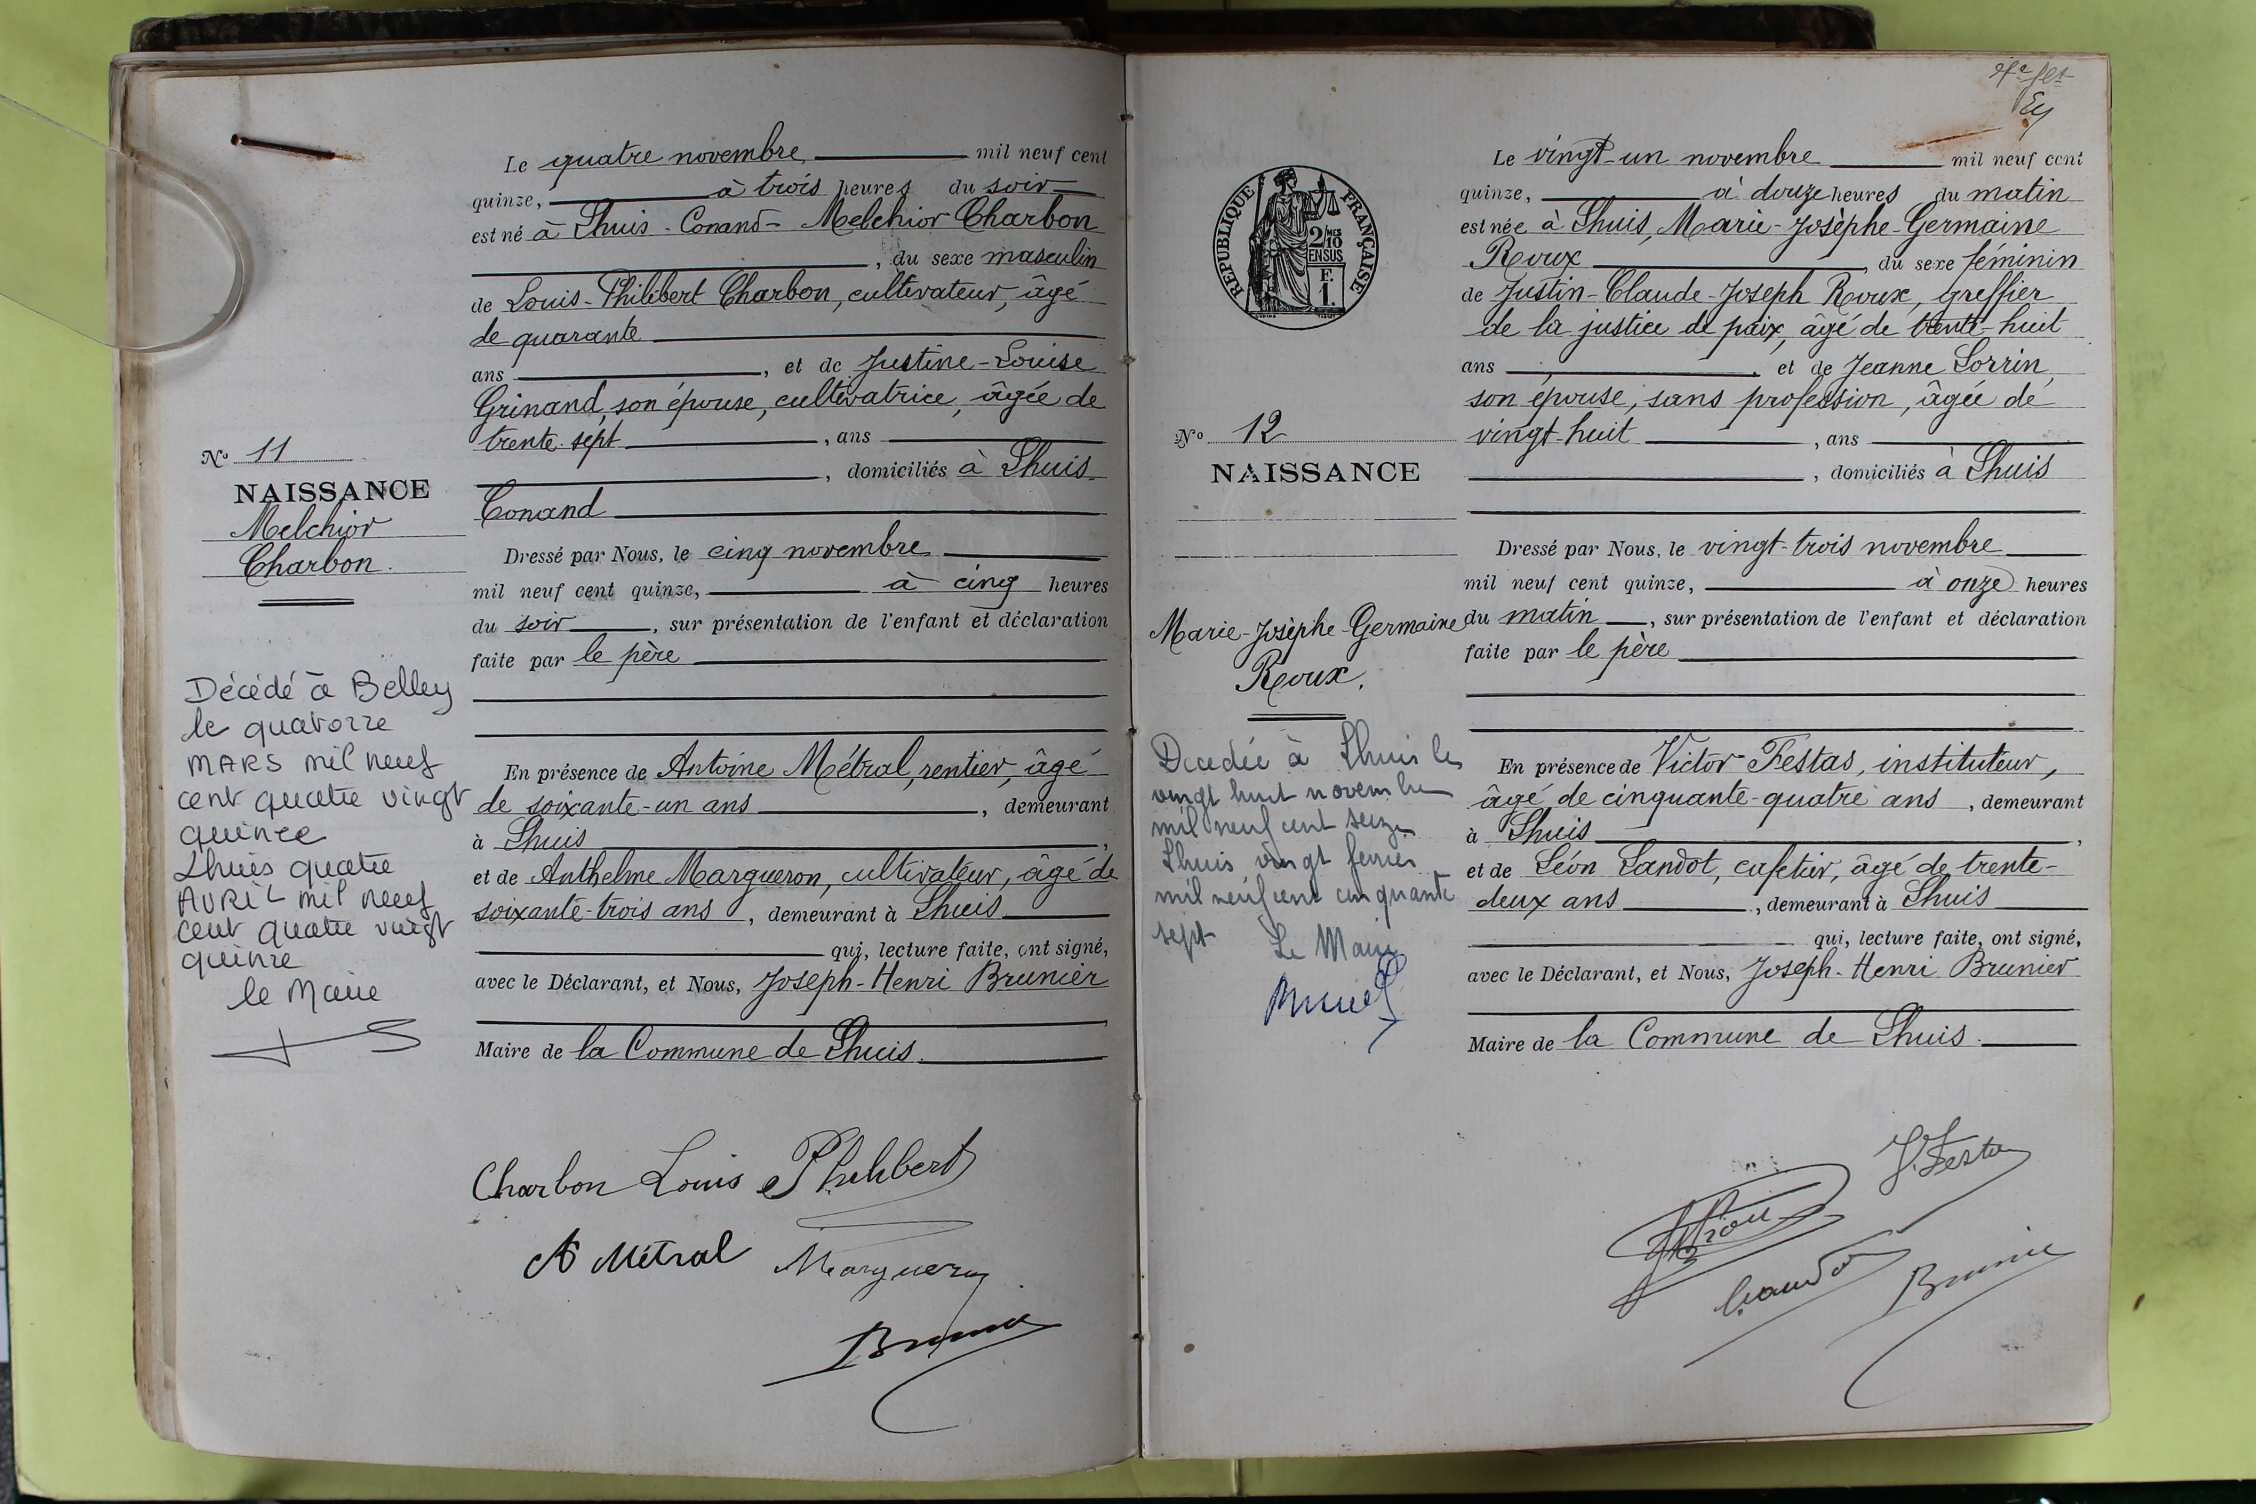 Le quatre novembre mil neuf cent
quinze, à trois heures du soir
est né à Lhuis - Conand - Melchior Charbon
, du sexe masculin
de Louis-Philibert Charbon, cultivateur, âgé
de quarante
ans , et de Justine-Louise
Grinand, son épouse, cultivatrice, âgée de
trente-sept , ans
, domiciliés à Lhuis-
Conand
Dressé par Nous, le cinq novembre
mil neuf cent quinze, à cinq heures
du soir , sur présentation de l'enfant et déclaration
faite par le père
En présence de Antoine Métral, rentier, âgé
de soixante-un ans , demeurant
à Lhuis ,
et de Anthelme Margueron, cultivateur, âgé de
soixante-trois ans , demeurant à Lhuis
qui, lecture faite, ont signé,
avec le Déclarant, et Nous, Joseph-Henri Brunier
Maire de la Commune de Lhuis.
Charbon Louis Philibert
A Métral Margueron
Brunier
No 11
NAISSANCE
Melchior
Charbon.
Décédé à Belley
le quatorze
MARS mil neuf
cent quatre vingt
quinze
Lhuis quatre
AVRIL mil neuf
cent quatre vingt
quinze
le Maire
RÉPUBLIQUE FRANÇAISE
2/10 MES
EN SUS
F.
1.
No 12
NAISSANCE
Marie-Josèphe-Germaine
Roux.
Decedée à Lhuis le
vingt huit novembre
mil neuf cent seize
Lhuis, vingt fevrier
mil neuf cent cinquante
sept Le Maire
Le vingt-un novembre mil neuf cent
quinze, à douze heures du matin
est née à Lhuis, Marie-Josèphe-Germaine
Roux , du sexe féminin
de Justin-Claude-Joseph Roux, greffier
de la justice de paix, âgé de trente-huit
ans , et de Jeanne Lorrin,
son épouse, sans profession, âgée de
vingt-huit , ans
, domiciliés à Lhuis
Dressé par Nous, le vingt-trois novembre
mil neuf cent quinze, à onze heures
du matin , sur présentation de l'enfant et déclaration
faite par le père
En présence de Victor Festas, instituteur,
âgé de cinquante-quatre ans , demeurant
à Lhuis ,
et de Léon Landot, cafetier, âgé de trente-
deux ans , demeurant à Lhuis
qui, lecture faite, ont signé,
avec le Déclarant, et Nous, Joseph-Henri Brunier
Maire de la Commune de Lhuis.
V. Festas
Brunier